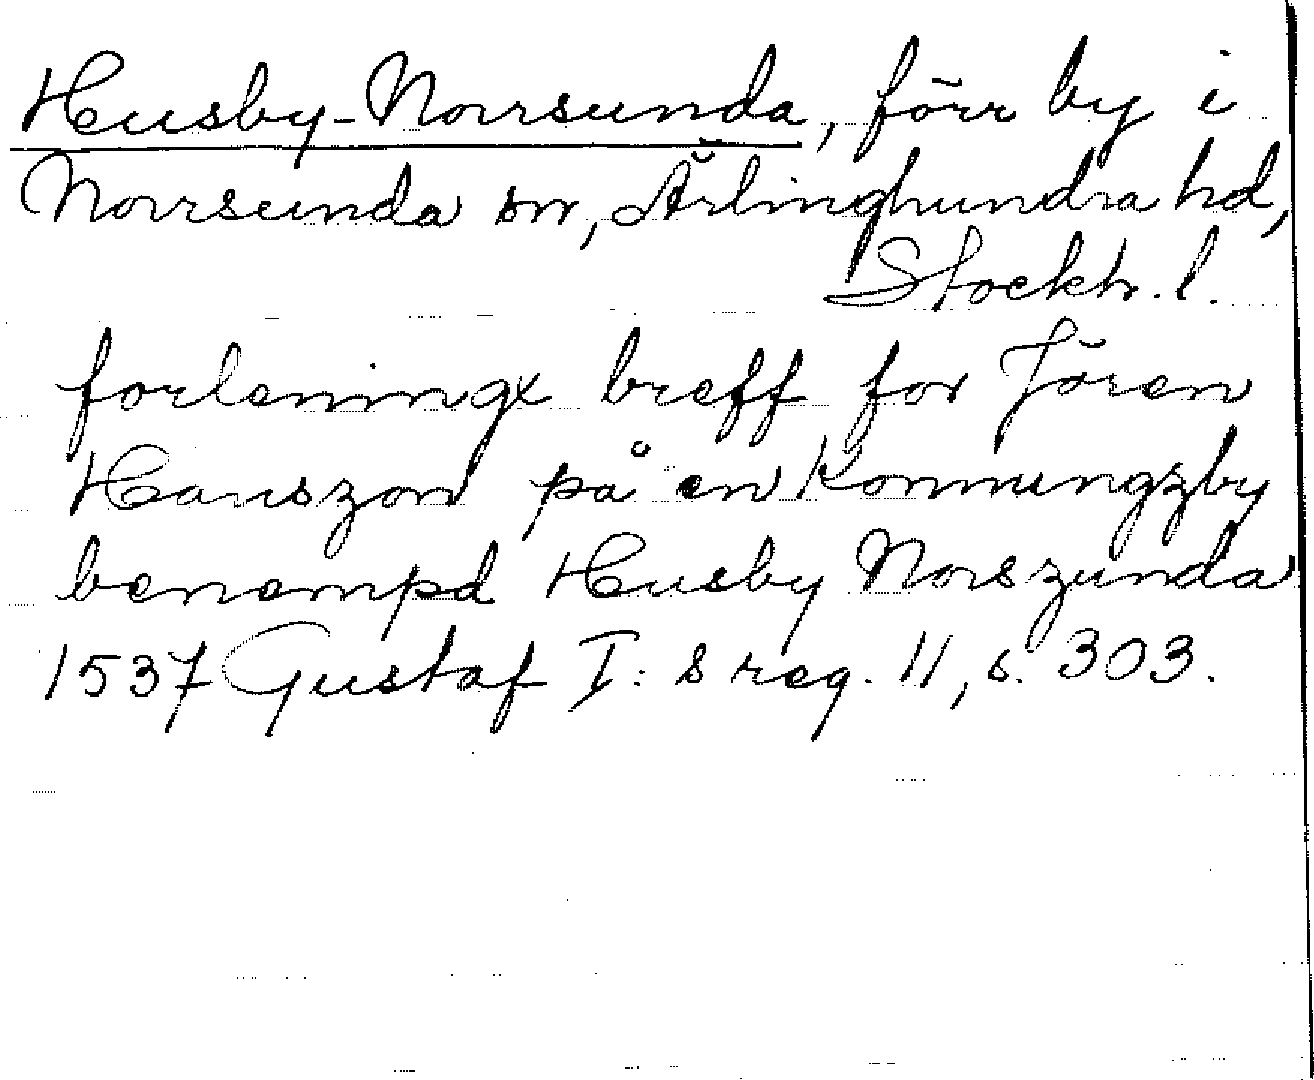 Husby-Norrsunda, förr by i
Norrsunda sn, Ärlinghundra hd,
Stockh. l.
forleningx breff for Jören
Hanszon på en Konnungzby
benempd Husby Norszunda
1537 Gustaf I:s reg. 11, s. 303.